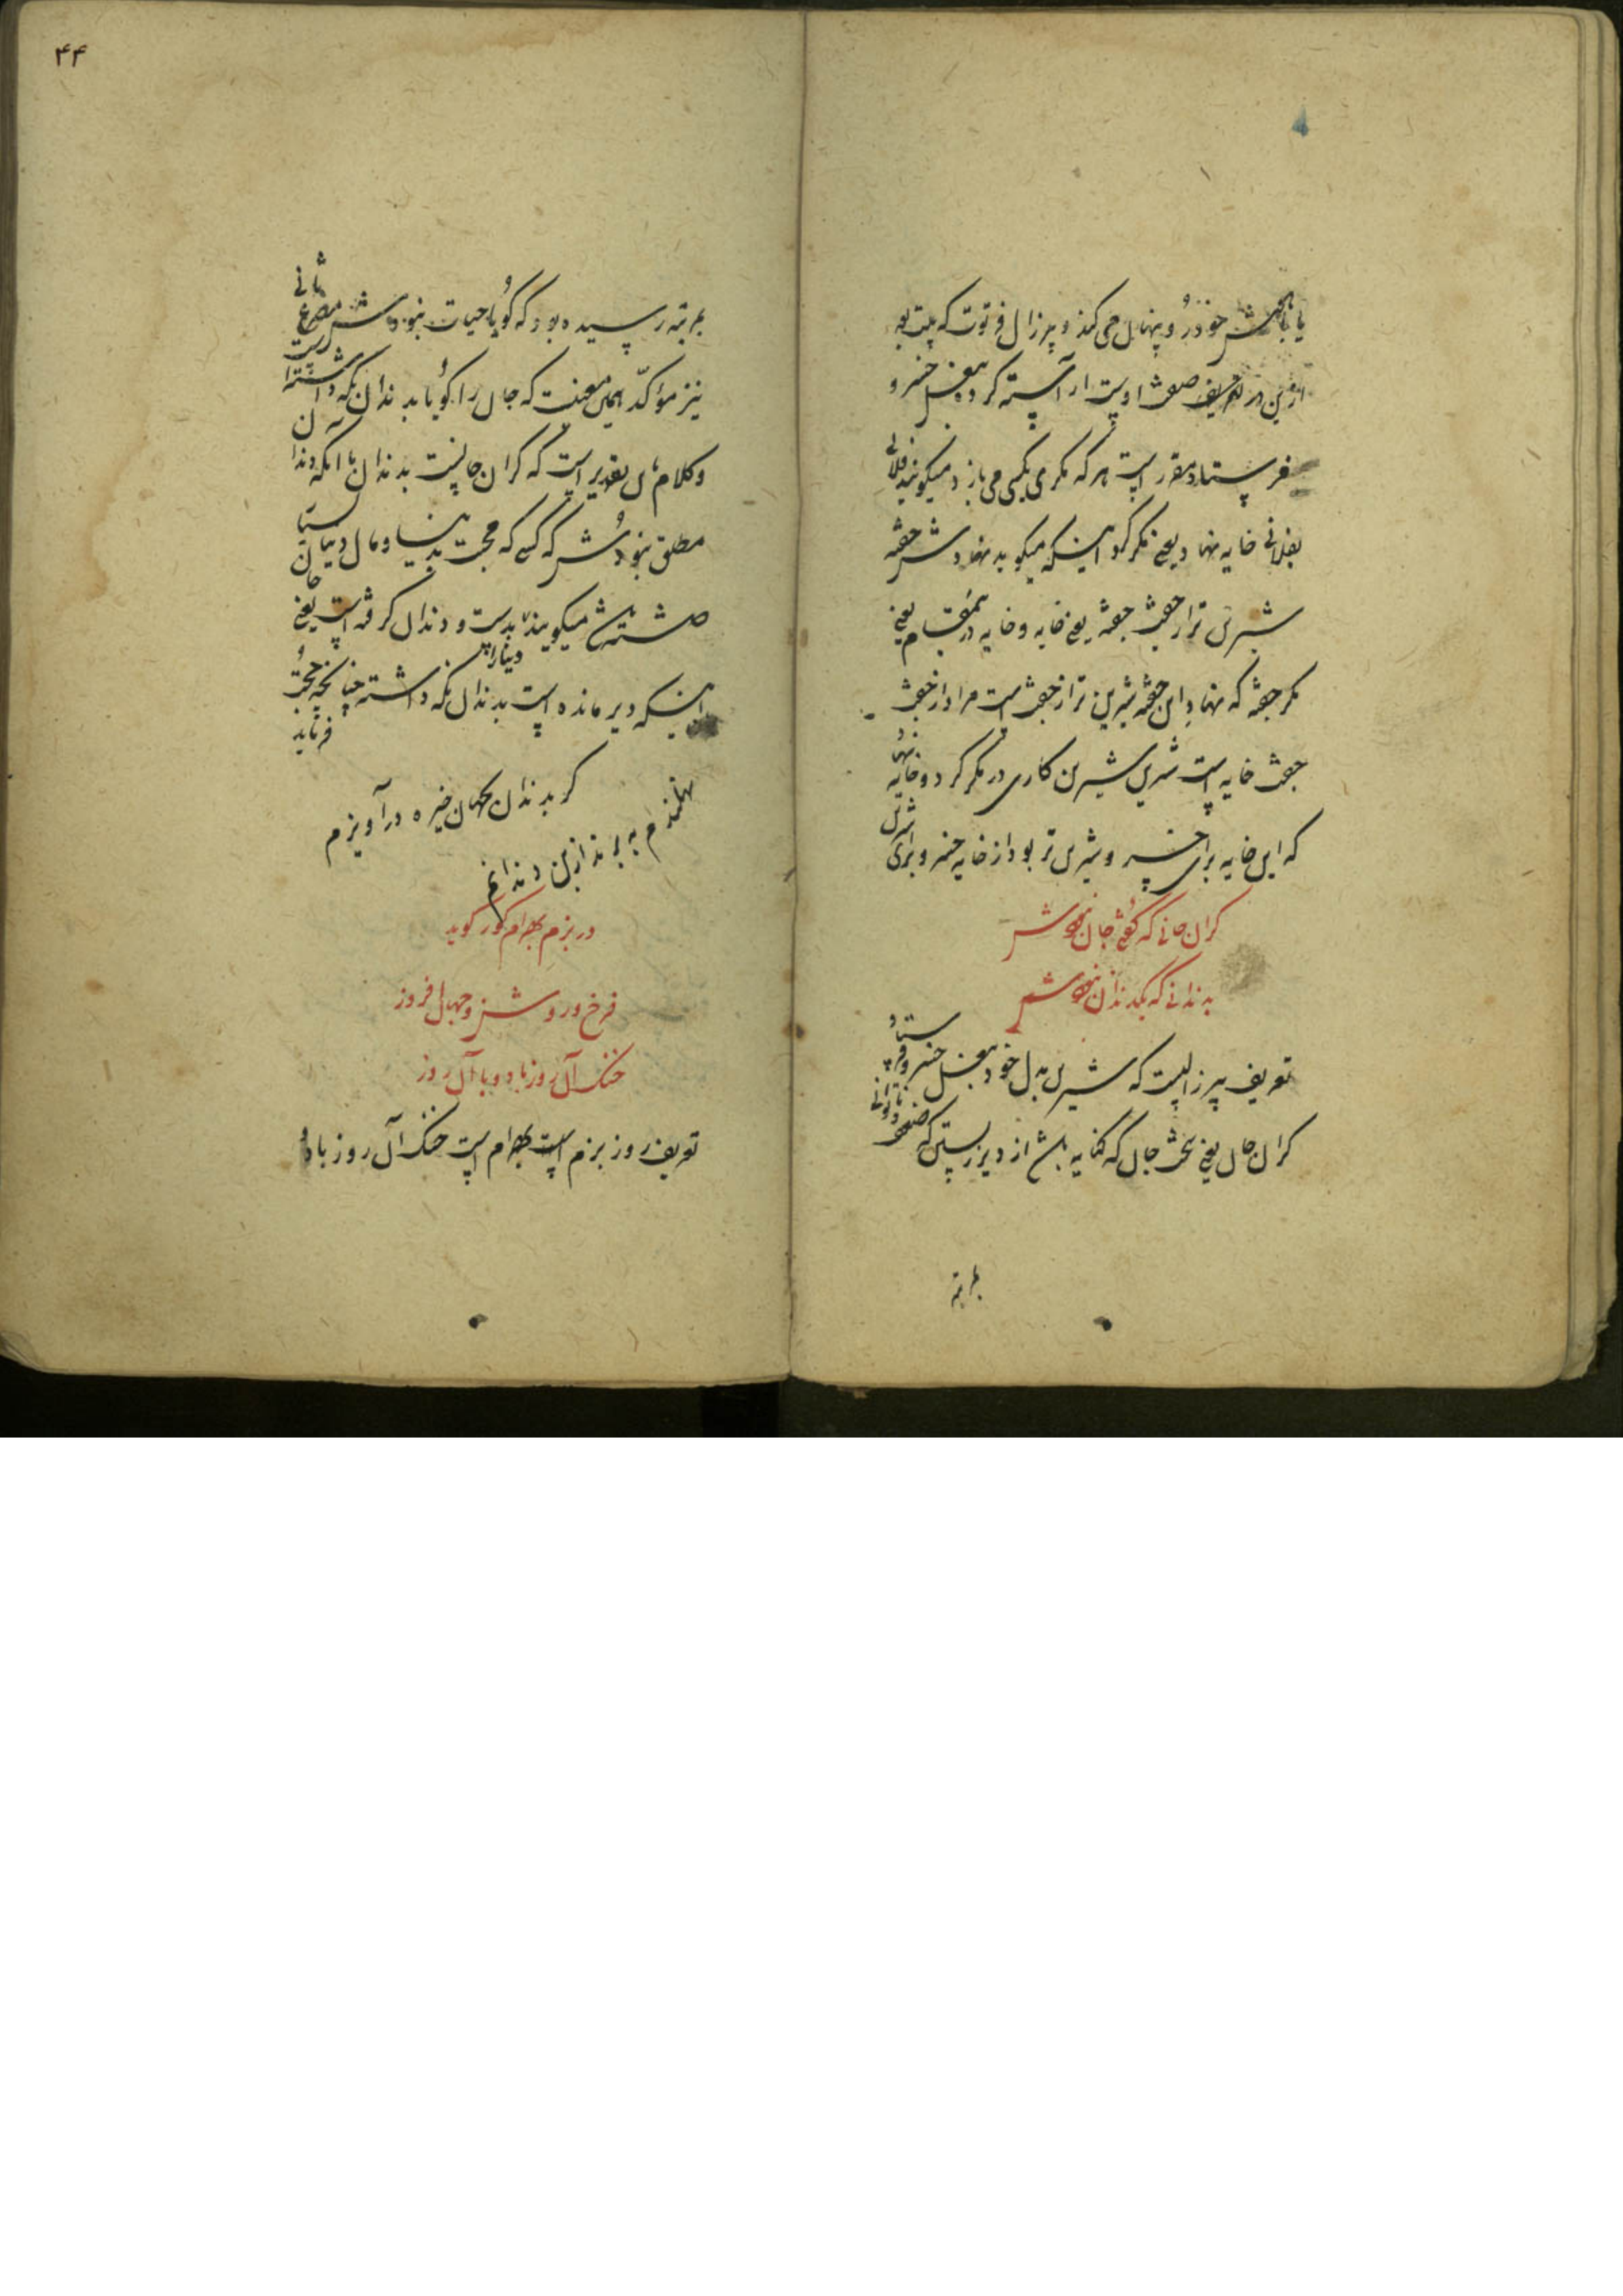 یا بالش خود درو پنهان می کند و پیر زال فرتوت که بیت بعد
ازین در تعریف صفت اوست آراسته کرده بغل خسرو
فرستاد مقرر است هر که مکری بکسی می بازد میگویند فلانی
بفلانی خایه نهاد یعنی مکر کرد اینکه میگوید نهادش جفته
شیرین تر از جفت جفته یعنی خایه و خایه درین مقام یعنی
مکر جفته که نهاد این جفته شیرین تر از جفت است مراد از جفت
جفت خایه است شیرین شیرین کاری در مکر کرد و خایه نهاد
که این خایه برای خسرو شیرین تر بود از خایه خسرو برای شیرین
گران جانی که گفتی جان نبودش
بدندانی که یکدندان نبودش
تعریف پیر زالیست که شیرین بدل خود بغل خسرو فرستاد
گران جان یعنی سخت جان که کنایه باشد از دیر زیستن که ضعف و ناتوانی
بمرتبه
۴۴
بمرتبه رسیده بود که گویا حیات نبودش مصرع ثانی
نیز مؤکد همین معنیست که جان را گویا بدندان نگه داشته است
و کلام این تقدیر است که گران جانیست بدندان با آنکه دندان
مطلق نبودش که کسی که محبت بدنیا و مال دنیا
داشته باشد میگویند بدست و دندان گرفته است یعنی
اینکه دیر مانده است دنیا را بدندان نگه داشته چنانچه حجت فرماید
گر بدندان بجهان خیره در آویزم
نهلندم ببرند از بن دندانم
در بزم بهرام گور گوید
فرخ و روشن و جهان افروز
خنک آن روز باد و یاد آن روز
تعریف روز بزم است بهرام است خنک آن روز باد